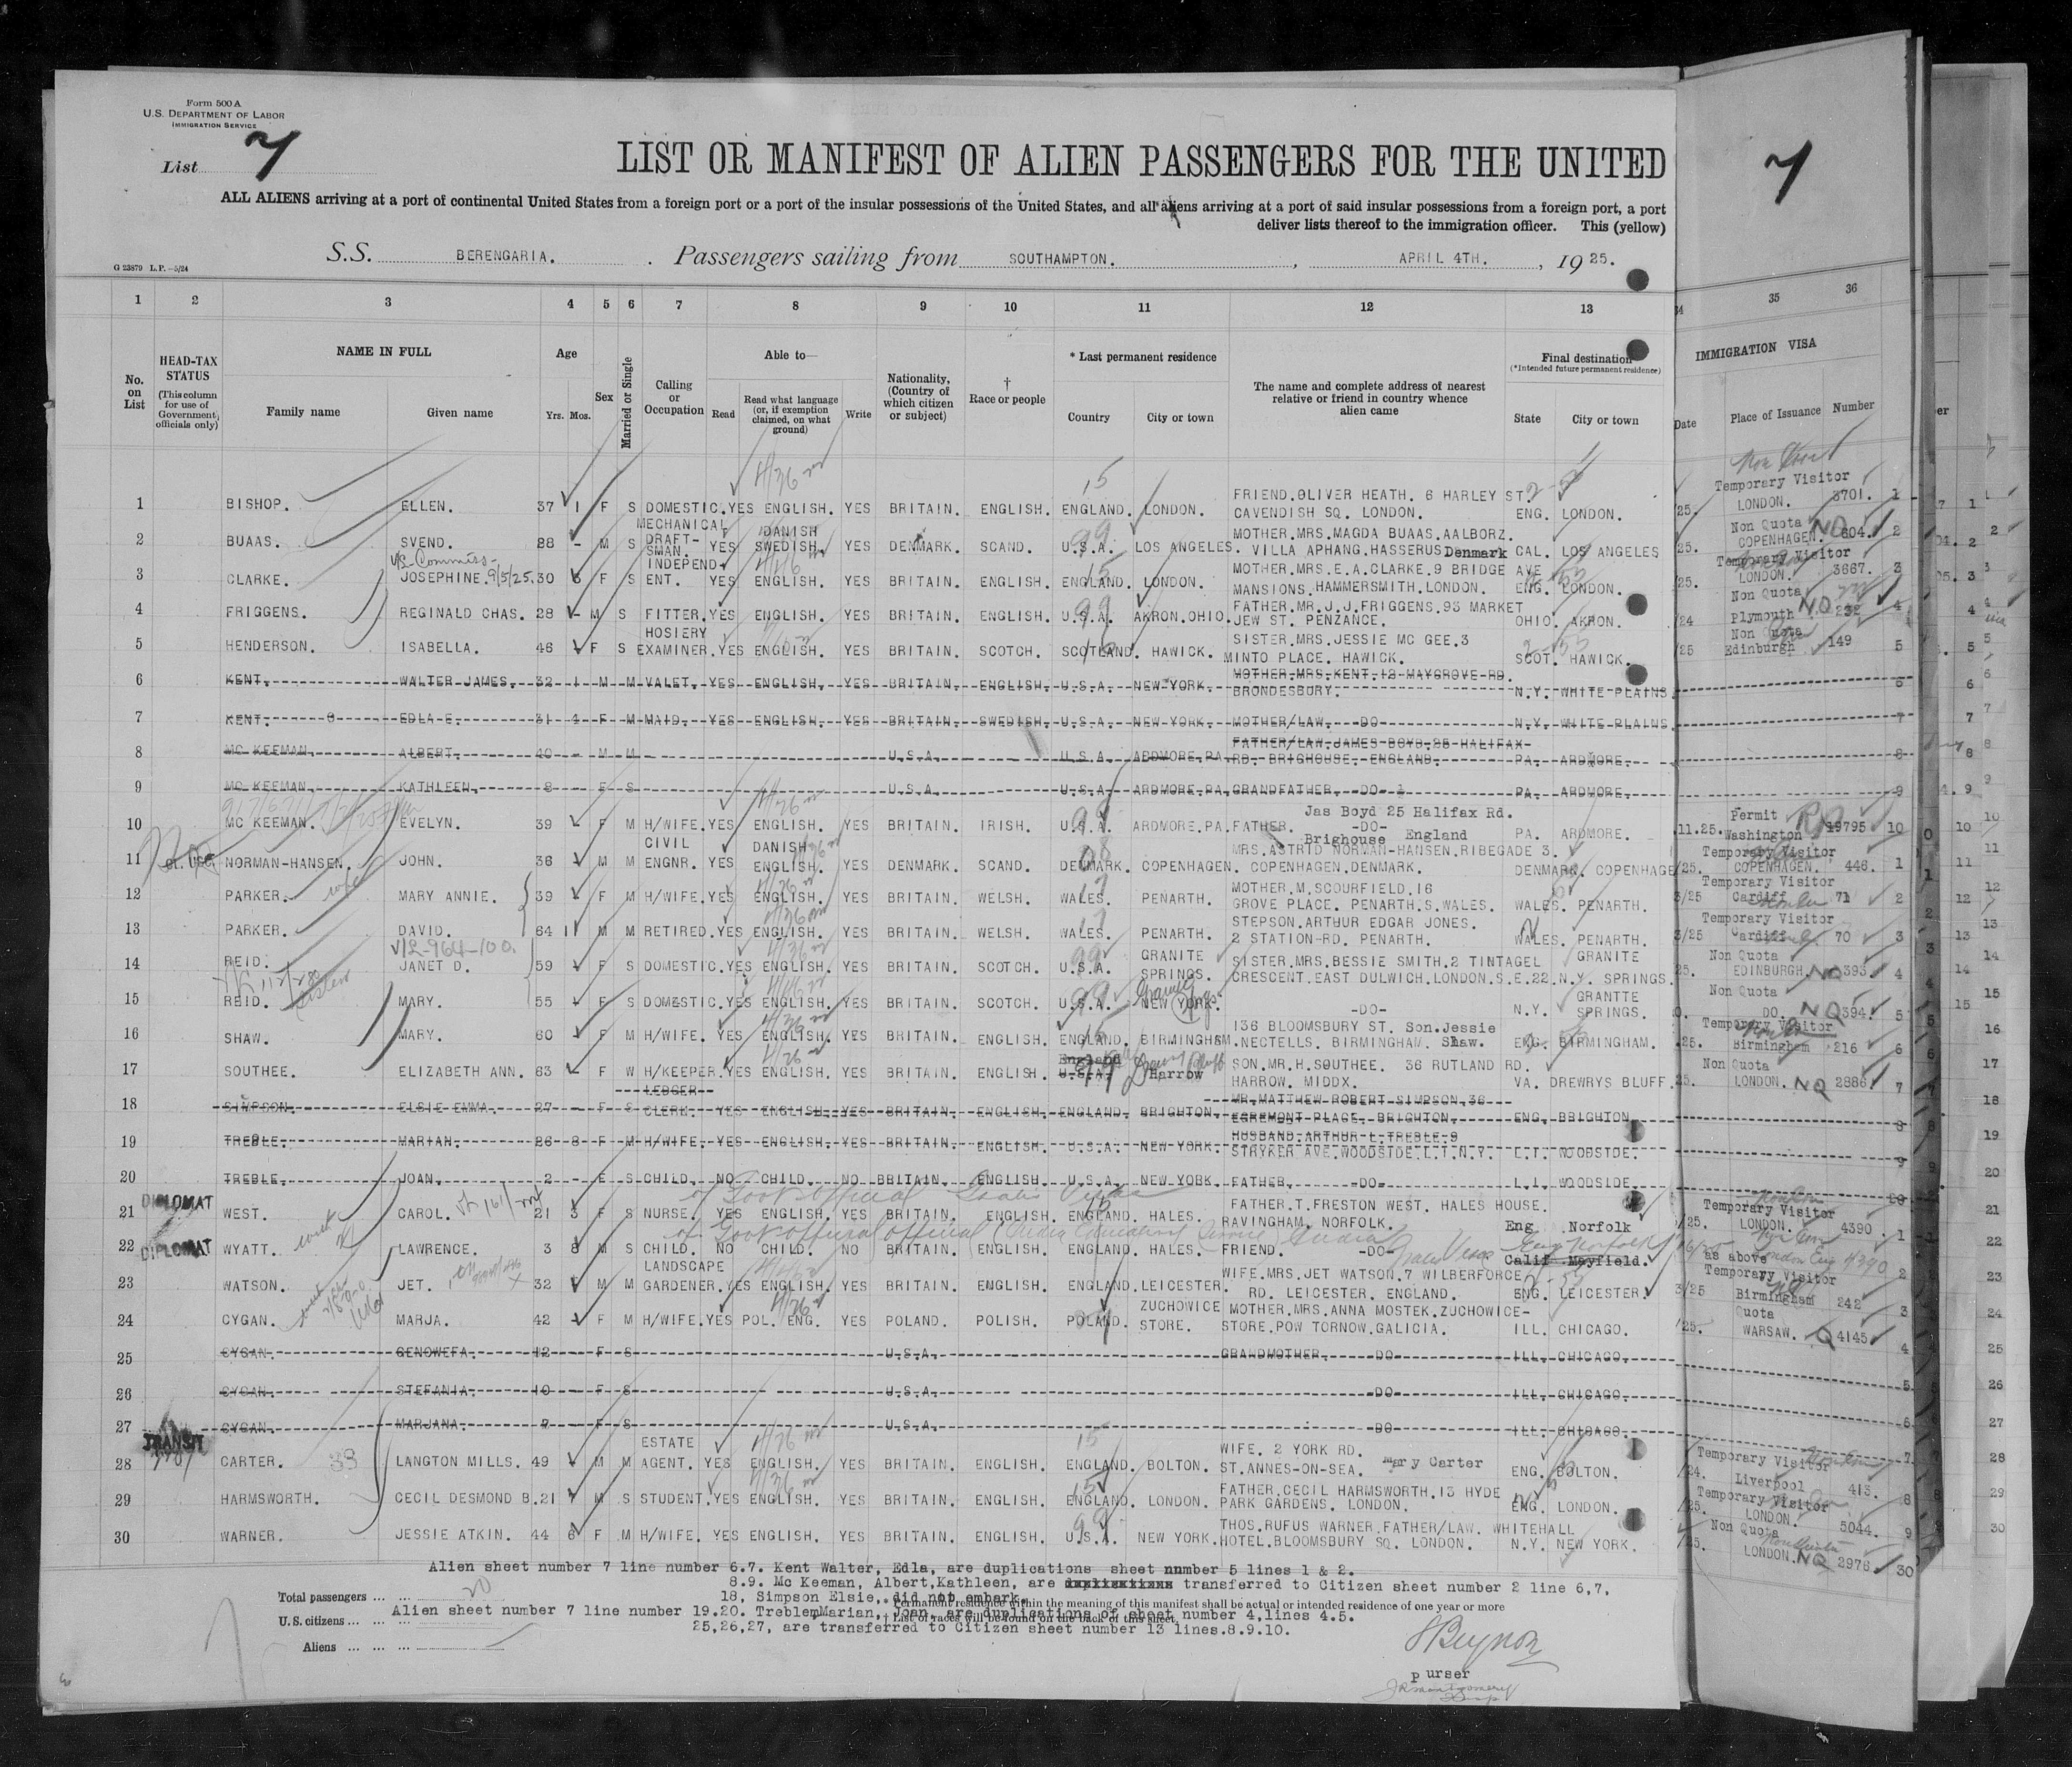 Form 500 A
U.S. DEPARTMENT OF LABOR
IMMIGRATION SERVICE
List 7
LIST OR MANIFEST OF ALIEN PASSENGERS FOR THE UNITED
7
ALL ALIENS arriving at a port of continental United States from a foreign port or a port of the insular possessions of the United States, and all aliens arriving at a port of said insular possessions from a foreign port, a port
deliver lists thereof to the immigration officer. This (yellow)
G 23879 L.P.-5/24
S.S. BERENGARIA. Passengers sailing from SOUTHAMPTON. , APRIL 4TH. , 19 25.
1 2 3 4 5 6 7 8 9 10 11 12 13 35 36
No. on List
HEAD-TAX STATUS (This column for use of Government officials only)
NAME IN FULL Family name Given name
Age Yrs. Mos.
Sex
Married or Single
Calling or Occupation
Able to— Read Read what language (or, if exemption claimed, on what ground) Write
Nationality, (Country of which citizen or subject)
† Race or people
* Last permanent residence Country City or town
The name and complete address of nearest relative or friend in country whence alien came
Final destination (*Intended future permanent residence) State City or town
IMMIGRATION VISA Date Place of Issuance Number
1 BISHOP. ELLEN. 37 1 F S DOMESTIC. YES ENGLISH. YES BRITAIN. ENGLISH. ENGLAND. LONDON. FRIEND.OLIVER HEATH. 6 HARLEY ST. CAVENDISH SQ. LONDON. ENG. LONDON. 25. Temporary Visitor LONDON. 3701. 1
2 BUAAS. SVEND. 28 - M S MECHANICAL DRAFT-SMAN. YES DANISH SWEDISH. YES DENMARK. SCAND. U.S.A. LOS ANGELES. MOTHER.MRS.MAGDA BUAAS.AALBORZ. VILLA APHANG.HASSERUS Denmark CAL. LOS ANGELES 25. Non Quota COPENHAGEN. NQ 604. 2
3 CLARKE. JOSEPHINE. 9/5/25. 30 F S INDEPENDENT. YES ENGLISH. YES BRITAIN. ENGLISH. ENGLAND. LONDON. MOTHER.MRS.E.A.CLARKE.9 BRIDGE AVE MANSIONS.HAMMERSMITH.LONDON. ENG. LONDON. 25. Temporary Visitor LONDON. 3667. 3
4 FRIGGENS. REGINALD CHAS. 28 - M S FITTER. YES ENGLISH. YES BRITAIN. ENGLISH. U.S.A. AKRON.OHIO. FATHER.MR.J.J.FRIGGENS.93 MARKET JEW ST. PENZANCE. OHIO. AKRON. /24 Non Quota Plymouth NQ 232 4
5 HENDERSON. ISABELLA. 46 - F S HOSIERY EXAMINER. YES ENGLISH. YES BRITAIN. SCOTCH. SCOTLAND. HAWICK. SISTER.MRS.JESSIE MC GEE.3 MINTO PLACE. HAWICK. SCOT. HAWICK. /25 Non Quota Edinburgh 149 5
6 KENT. WALTER JAMES. 32 1 M M VALET. YES ENGLISH. YES BRITAIN. ENGLISH. U.S.A. NEW YORK. MOTHER.MRS.KENT.12 MAYGROVE RD. BRONDESBURY. N.Y. WHITE PLAINS. 6
7 KENT. EDLA E. 31 4 F M MAID. YES ENGLISH. YES BRITAIN. SWEDISH. U.S.A. NEW YORK. MOTHER/LAW. -DO- N.Y. WHITE PLAINS. 7
8 MC KEEMAN. ALBERT. 40 - M M U.S.A. U.S.A. ARDMORE.PA. FATHER/LAW.JAMES BOYD.25 HALIFAX RD. BRIGHOUSE. ENGLAND. PA. ARDMORE. 8
9 MC KEEMAN. KATHLEEN. 8 F S U.S.A. U.S.A. ARDMORE.PA. GRANDFATHER. -DO- PA. ARDMORE. 9
10 MC KEEMAN. EVELYN. 39 - F M H/WIFE. YES ENGLISH. YES BRITAIN. IRISH. U.S.A. ARDMORE.PA. FATHER. -DO- Jas Boyd 25 Halifax Rd. Brighouse England PA. ARDMORE. 11.25. Permit Washington 19795 10
11 NORMAN-HANSEN. JOHN. 36 - M M CIVIL ENGNR. YES DANISH ENGLISH. YES DENMARK. SCAND. DENMARK. COPENHAGEN. MRS.ASTRID NORMAN-HANSEN.RIBEGADE 3. COPENHAGEN.DENMARK. DENMARK. COPENHAGE /25. Temporary Visitor COPENHAGEN. 446. 1
12 PARKER. wife MARY ANNIE. 39 F M H/WIFE. YES ENGLISH. YES BRITAIN. WELSH. WALES. PENARTH. MOTHER.M.SCOURFIELD.16 GROVE PLACE. PENARTH.S.WALES. WALES. PENARTH. 3/25 Temporary Visitor Cardiff 71 2
13 PARKER. DAVID. 64 11 M M RETIRED. YES ENGLISH. YES BRITAIN. WELSH. WALES. PENARTH. STEPSON.ARTHUR EDGAR JONES. 2 STATION-RD. PENARTH. WALES. PENARTH. 3/25 Temporary Visitor Cardiff 70 3
14 REID. JANET D. 59 - F S DOMESTIC. YES ENGLISH. YES BRITAIN. SCOTCH. U.S.A. GRANITE SPRINGS. SISTER.MRS.BESSIE SMITH.2 TINTAGEL CRESCENT.EAST DULWICH.LONDON.S.E.22. N.Y. GRANITE SPRINGS. 25. Non Quota EDINBURGH. NQ 393. 4
15 REID. sister MARY. 55 - F S DOMESTIC. YES ENGLISH. YES BRITAIN. SCOTCH. U.S.A. NEW YORK. Granite Spgs. -DO- N.Y. GRANTTE SPRINGS. Non Quota DO. NQ 394. 5
16 SHAW. MARY. 60 F M H/WIFE. YES ENGLISH. YES BRITAIN. ENGLISH. ENGLAND. BIRMINGHAM. 136 BLOOMSBURY ST. Son.Jessie NECTELLS. BIRMINGHAM. Shaw. ENG. BIRMINGHAM. .25. Temporary Visitor Birmingham 216 6
17 SOUTHEE. ELIZABETH ANN. 63 - F W H/KEEPER. YES ENGLISH. YES BRITAIN. ENGLISH. England U.S.A. Harrow Drewry Bluff SON.MR.H.SOUTHEE. 36 RUTLAND RD. HARROW. MIDDX. VA. DREWRYS BLUFF. 25. Non Quota LONDON. NQ 2886 7
18 SIMPSON. ELSIE EMMA. 27 - F S LEDGER CLERK. YES ENGLISH. YES BRITAIN. ENGLISH. ENGLAND. BRIGHTON. MR.MATTHEW ROBERT SIMPSON.36 EGREMONT PLACE. BRIGHTON. ENG. BRIGHTON. 8
19 TREBLE. MARIAN. 26 8 F M H/WIFE. YES ENGLISH. YES BRITAIN. ENGLISH. U.S.A. NEW YORK. HUSBAND.ARTHUR L.TREBLE.9 STRYKER AVE.WOODSIDE.L.I.N.Y. L.I. WOODSIDE. 9
20 TREBLE. JOAN. 2 - F S CHILD. NO CHILD. NO BRITAIN. ENGLISH. U.S.A. NEW YORK. FATHER. -DO- L.I. WOODSIDE. 20
DIPLOMAT
21 WEST. CAROL. 21 3 F S NURSE. YES ENGLISH. YES BRITAIN. ENGLISH. ENGLAND. HALES. FATHER.T.FRESTON WEST. HALES HOUSE. RAVINGHAM. NORFOLK. Eng Norfolk /25. Temporary Visitor LONDON. 4390 1
DIPLOMAT
22 WYATT. LAWRENCE. 3 8 M S CHILD. NO CHILD. NO BRITAIN. ENGLISH. ENGLAND. HALES. FRIEND. -DO- Calif Mayfield. Eng Norfolk as above London Eng 4390 2
23 WATSON. JET. 32 M M LANDSCAPE GARDENER. YES ENGLISH. YES BRITAIN. ENGLISH. ENGLAND. LEICESTER. WIFE.MRS.JET WATSON.7 WILBERFORCE RD. LEICESTER. ENGLAND. ENG. LEICESTER. 3/25 Temporary Visitor Birmingham 242 3
24 CYGAN. MARJA. 42 F M H/WIFE. YES POL. ENG. YES POLAND. POLISH. POLAND. ZUCHOWICE STORE. MOTHER.MRS.ANNA MOSTEK.ZUCHOWICE- STORE.POW TORNOW.GALICIA. ILL. CHICAGO. 25. Quota WARSAW. Q 4145 4
25 CYGAN. GENOWEFA. 12 - F S U.S.A. GRANDMOTHER. DO ILL. CHICAGO.
26 CYGAN. STEFANIA. 10 - F S U.S.A. -DO- ILL. CHICAGO. 5
27 CYGAN. MARJANA. 7 - F S U.S.A. DO ILL. CHICAGO. 6
TRANSIT
28 CARTER. 33 LANGTON MILLS. 49 M M ESTATE AGENT. YES ENGLISH. YES BRITAIN. ENGLISH. ENGLAND. BOLTON. WIFE. 2 YORK RD. ST.ANNES-ON-SEA. Mary Carter ENG. BOLTON. /24. Temporary Visitor Liverpool 413. 8
29 HARMSWORTH. CECIL DESMOND B. 21 7 M S STUDENT. YES ENGLISH. YES BRITAIN. ENGLISH. ENGLAND. LONDON. FATHER.CECIL HARMSWORTH.13 HYDE PARK GARDENS. LONDON. ENG. LONDON. /25. Temporary Visitor LONDON. 5044. 9
30 WARNER. JESSIE ATKIN. 44 6 F M H/WIFE. YES ENGLISH. YES BRITAIN. ENGLISH. U.S.A. NEW YORK. THOS.RUFUS WARNER.FATHER/LAW. WHITEHALL HOTEL.BLOOMSBURY SQ. LONDON. N.Y. NEW YORK. /25. Non Quota LONDON. NQ 2976 30
Alien sheet number 7 line number 6.7. Kent Walter, Edla, are duplications sheet number 5 lines 1 & 2.
8.9. Mc Keeman, Albert,Kathleen, are transferred to Citizen sheet number 2 line 6,7,
Total passengers ... ... 20
18, Simpson Elsie, did not embark.
* Permanent residence within the meaning of this manifest shall be actual or intended residence of one year or more
U.S. citizens ... ... ...
Alien sheet number 7 line number 19.20. Treble,Marian, Joan, are duplications of sheet number 4,lines 4.5.
† List of races will be found on the back of this sheet.
25,26,27, are transferred to Citizen sheet number 13 lines.8.9.10.
Aliens ... ... ...
Purser